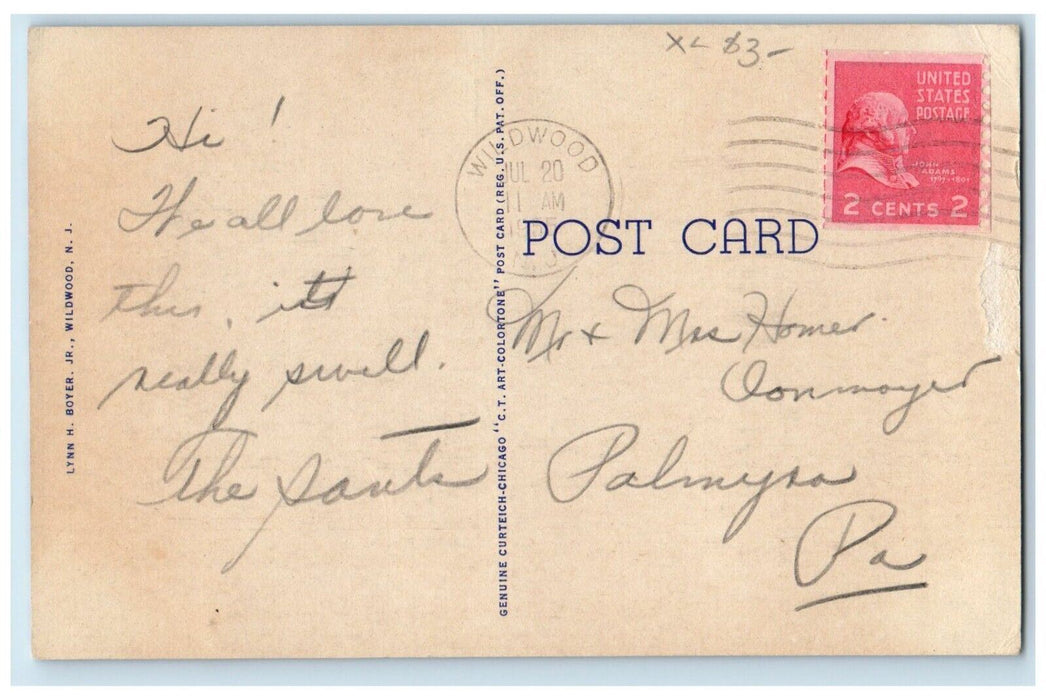 XL $3-
UNITED
STATES
POSTAGE
JOHN
ADAMS
1797-1801
2 CENTS 2
WILDWOOD
JUL 20
11 AM
N.J.
POST CARD
Hi!
We all love
this, it's
really swell.
The
Mr & Mrs Homer
Palmyra
Pa
LYNN H. BOYER, JR., WILDWOOD, N. J.
GENUINE CURTEICH-CHICAGO "C.T. ART-COLORTONE" POST CARD (REG. U.S. PAT. OFF.)